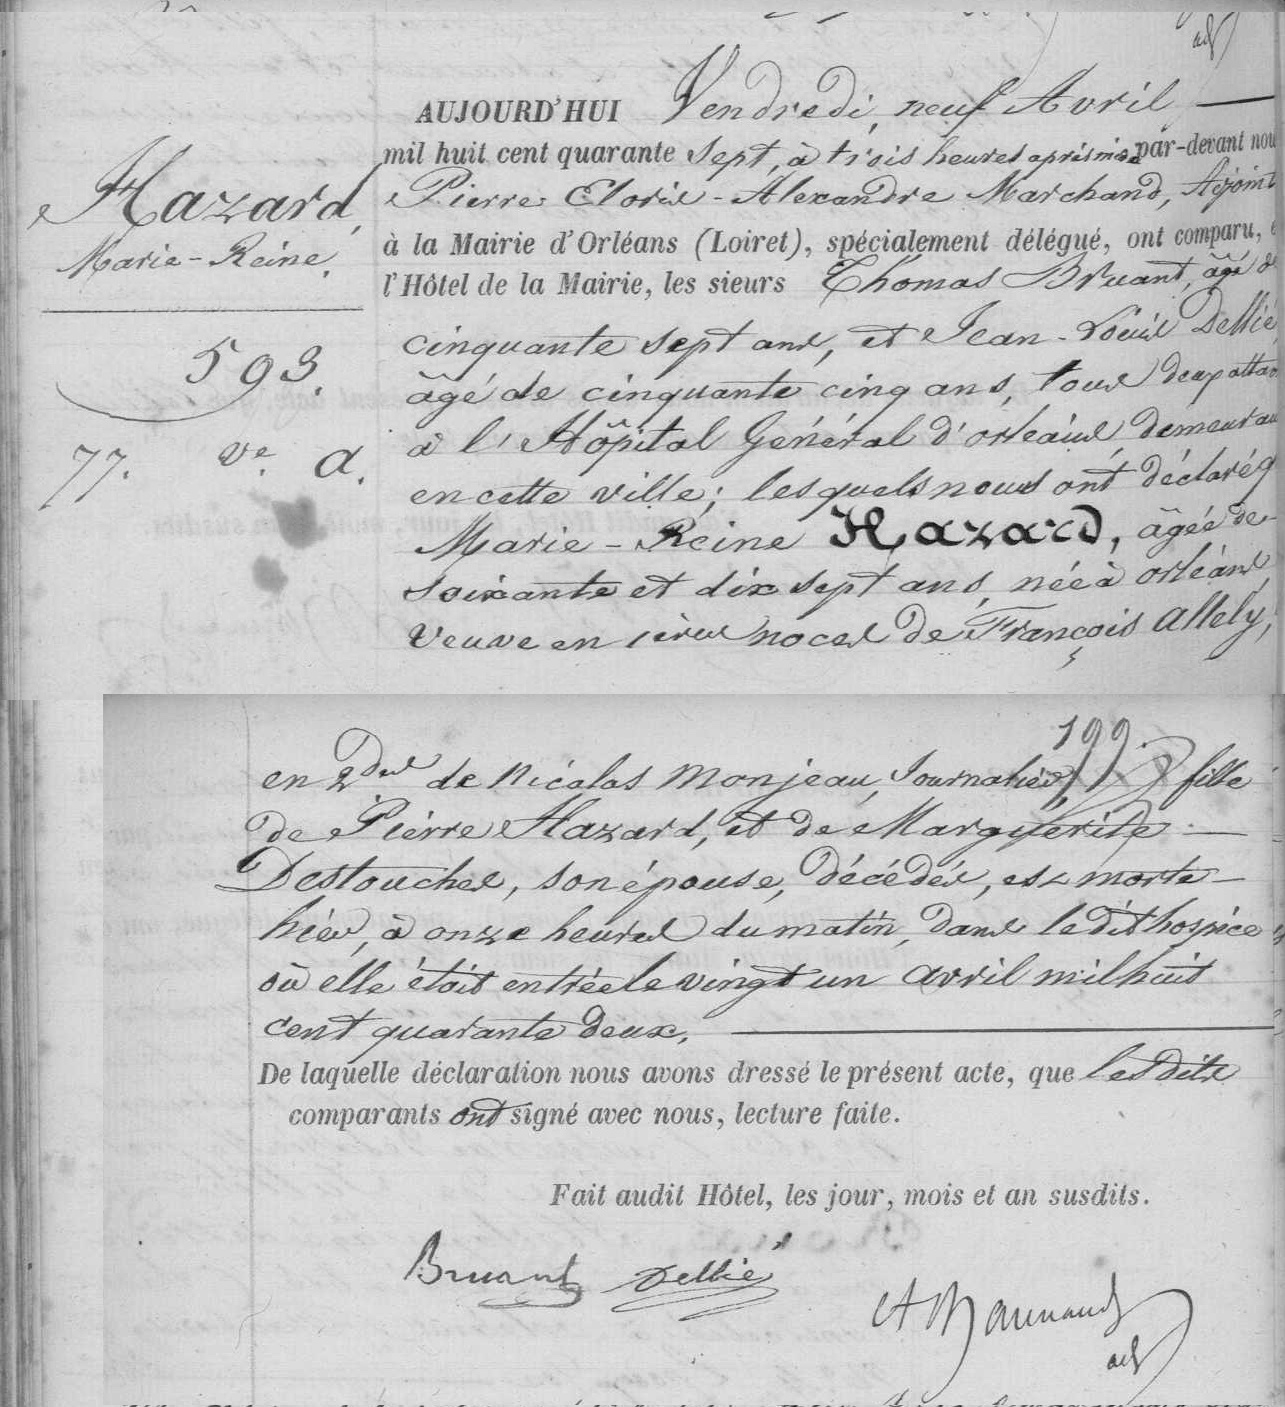 Hazard,
Marie-Reine.
593.
77. Ve. a.
AUJOURD'HUI Vendredi, neuf Avril
mil huit cent quarante sept, à trois heures après midi par-devant nous
Pierre Eloris-Alexandre Marchand, Adjoint
à la Mairie d'Orléans (Loiret), spécialement délégué, ont comparu,
l'Hôtel de la Mairie, les sieurs Thomas Bruant, âgé de
cinquante sept ans, et Jean-Louis Dellié,
âgé de cinquante cinq ans, tous deux attac
à l'Hôpital Général d'orléans, demeuran
en cette ville; lesquels nous ont déclaré q
Marie-Reine Hazard, âgée de
soixante et dix sept ans, née à orléans,
Veuve en 1ères noces de François Allely,
199.
en 2des de Nicolas Monjeau, Journalier, fille
de Pierre Hazard, et de Marguerite
Destouches, son épouse, décédés, est morte
hier, à onze heures du matin, dans le dit hospice
où elle étoit entrée le vingt un avril mil huit
cent quarante deux.
De laquelle déclaration nous avons dressé le présent acte, que lesdits
comparants ont signé avec nous, lecture faite.
Fait audit Hôtel, les jour, mois et an susdits.
Bruant Dellié
A Marchand
adj